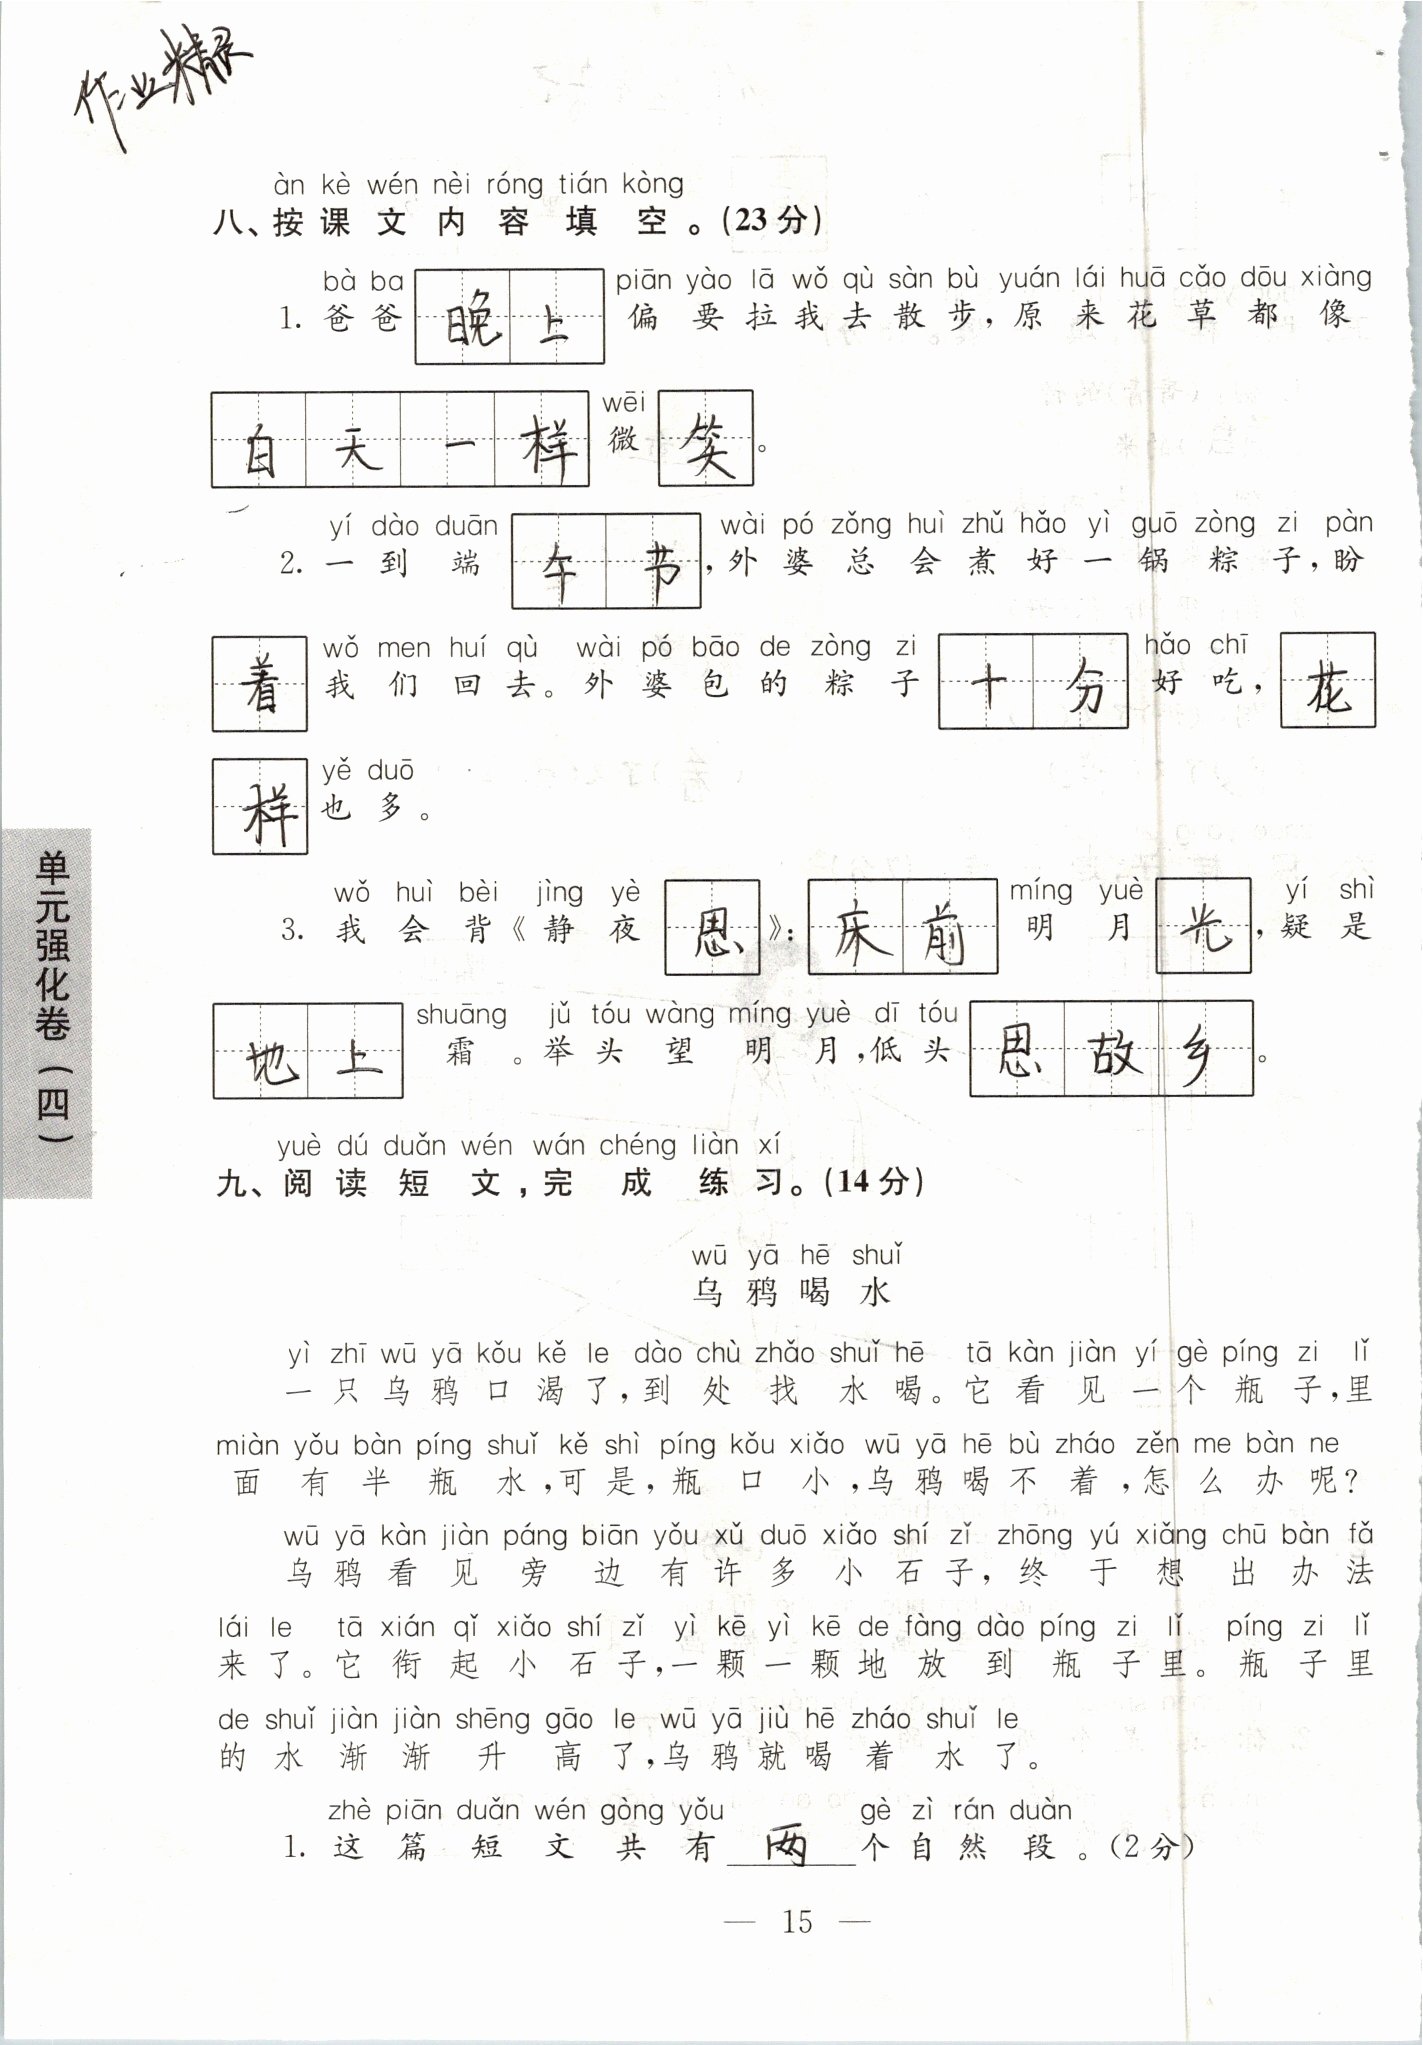 作业精灵
àn kè wén nèi róng tián kòng
八、按课文内容填空。(23分)
bà ba piān yào lā wǒ qù sàn bù yuán lái huā cǎo dōu xiàng
1. 爸爸晚上偏要拉我去散步,原来花草都像
wēi
白天一样微笑。
yí dào duān wài pó zǒng huì zhǔ hǎo yì guō zòng zi pàn
2. 一到端午节,外婆总会煮好一锅粽子,盼
wǒ men huí qù wài pó bāo de zòng zi hǎo chī
着我们回去。外婆包的粽子十分好吃,花
yě duō
样也多。
wǒ huì bèi jìng yè míng yuè yí shì
3. 我会背《静夜思》:床前明月光,疑是
shuāng jǔ tóu wàng míng yuè dī tóu
地上霜。举头望明月,低头思故乡。
yuè dú duǎn wén wán chéng liàn xí
九、阅读短文,完成练习。(14分)
wū yā hē shuǐ
乌鸦喝水
yì zhī wū yā kǒu kě le dào chù zhǎo shuǐ hē tā kàn jiàn yí gè píng zi lǐ
一只乌鸦口渴了,到处找水喝。它看见一个瓶子,里
miàn yǒu bàn píng shuǐ kě shì píng kǒu xiǎo wū yā hē bù zháo zěn me bàn ne
面有半瓶水,可是,瓶口小,乌鸦喝不着,怎么办呢?
wū yā kàn jiàn páng biān yǒu xǔ duō xiǎo shí zǐ zhōng yú xiǎng chū bàn fǎ
乌鸦看见旁边有许多小石子,终于想出办法
lái le tā xián qǐ xiǎo shí zǐ yì kē yì kē de fàng dào píng zi lǐ píng zi lǐ
来了。它衔起小石子,一颗一颗地放到瓶子里。瓶子里
de shuǐ jiàn jiàn shēng gāo le wū yā jiù hē zháo shuǐ le
的水渐渐升高了,乌鸦就喝着水了。
zhè piān duǎn wén gòng yǒu gè zì rán duàn
1. 这篇短文共有两个自然段。(2分)
单元强化卷(四)
— 15 —